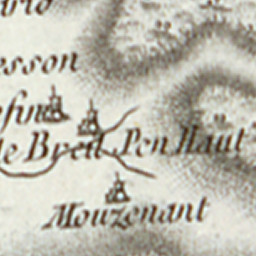 esson
le Breil Pen Haut
Mouzenant